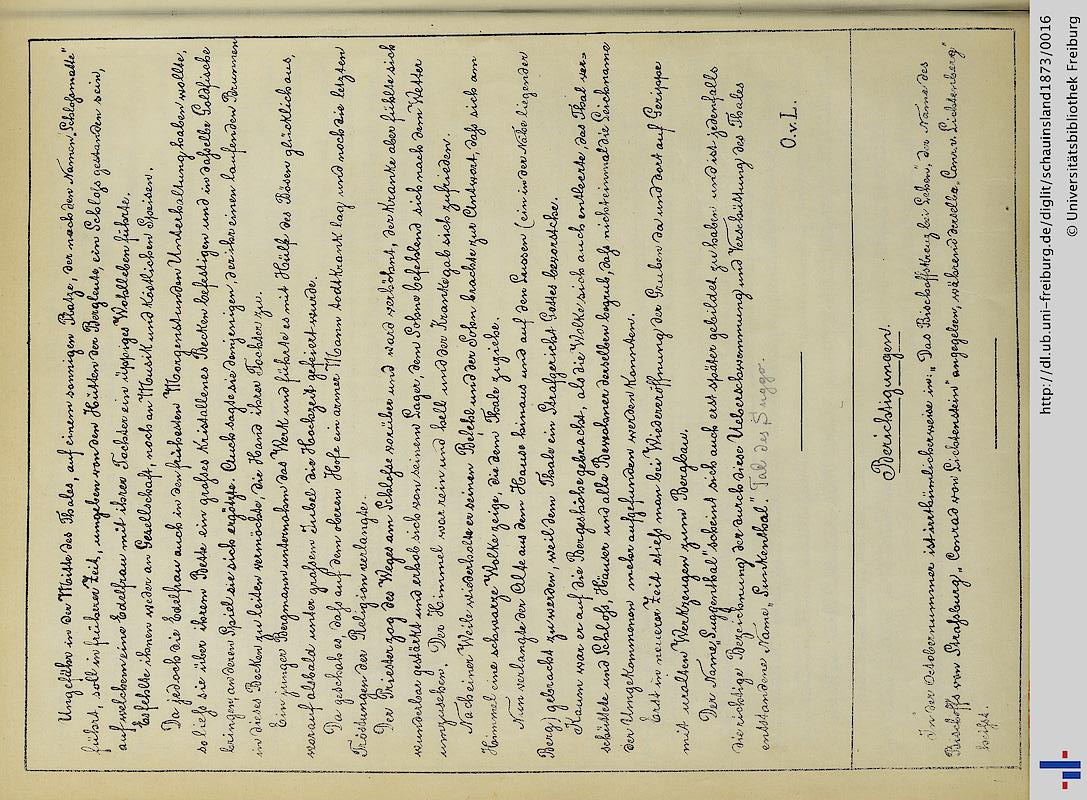 Ungefähr in der Mitte des Thales, auf einem sonnigen Platze, der noch den Namen „Schloßmatte"
führt, soll in früherer Zeit, umgeben von den Hütten der Bergleute, ein Schloß gestanden sein,
auf welchem eine Edelfrau mit ihrer Tochter ein üppiges Wohlleben führte.
Es fehlte ihnen weder an Gesellschaft, noch an Musik und köstlichen Speisen.
Da jedoch die Edelfrau auch in den frühesten Morgenstunden Unterhaltung haben wollte,
so ließ sie über ihrem Bette ein großes kristallenes Becken befestigen und in dasselbe Goldfische
bringen, an deren Spiel sie sich ergötzte. Auch sagte sie demjenigen, der ihr einen laufenden Brunnen
in dieses Becken zu leiten vermöchte, die Hand ihrer Tochter zu.
Ein junger Bergmann unternahm das Werk und führte es mit Hülfe des Bösen glücklich aus,
worauf alsbald unter großem Jubel die Hochzeit gefeiert wurde.
Da geschah es, daß auf dem oberen Hofe ein armer Mann todtkrank lag und noch die letzten
Tröstungen der Religion verlangte.
Der Priester zog des Weges am Schlosse vorüber und ward verhöhnt, der Kranke aber fühlte sich
wunderbar gestärkt und erhob sich von seinem Lager, dem Sohne befehlend sich nach dem Wetter
umzusehen. Der Himmel war rein und hell und der Kranke gab sich zufrieden.
Nach einer Weile wiederholte er seinen Befehl und der Sohn brachte zur Antwort, daß sich am
Himmel eine schwarze Wolke zeige, die dem Thale zuziehe.
Nun verlangte der Alte aus dem Hause hinaus und auf den Luosen (ein in der Nähe liegender
Berg) gebracht zu werden, weil dem Thale ein Strafgericht Gottes bevorstehe.
Kaum war er auf die Bergeshöhe gebracht, als die Wolke sich auch entleerte, das Thal ver=
schüttete und Schloß, Häuser und alle Bewohner derselben begrub, daß nicht einmal die Leichname
der Umgekommenen mehr aufgefunden werden konnten.
Erst in neuerer Zeit stieß man bei Wiedereröffnung der Gruben da und dort auf Gerippe
mit uralten Werkzeugen zum Bergbau.
Der Name „Suggenthal" scheint sich auch erst später gebildet zu haben und ist jedenfalls
die richtige Bezeichnung der durch diese Ueberschwemmung und Verschüttung des Thales
entstandene Name „Sunkenthal". Tal des Suggo.
O. v. L.
Berichtigungen.
In der Octobernummer ist irrthümlicherweise in: „Das Bischofskreuz bei Lehen", der Name des
Bischofs von Straßburg „Conrad von Lichtenstein" angegeben, während derselbe „Conrad Lichtenberg"
heißt.
http://dl.ub.uni-freiburg.de/diglit/schauinsland1873/0016
© Universitätsbibliothek Freiburg